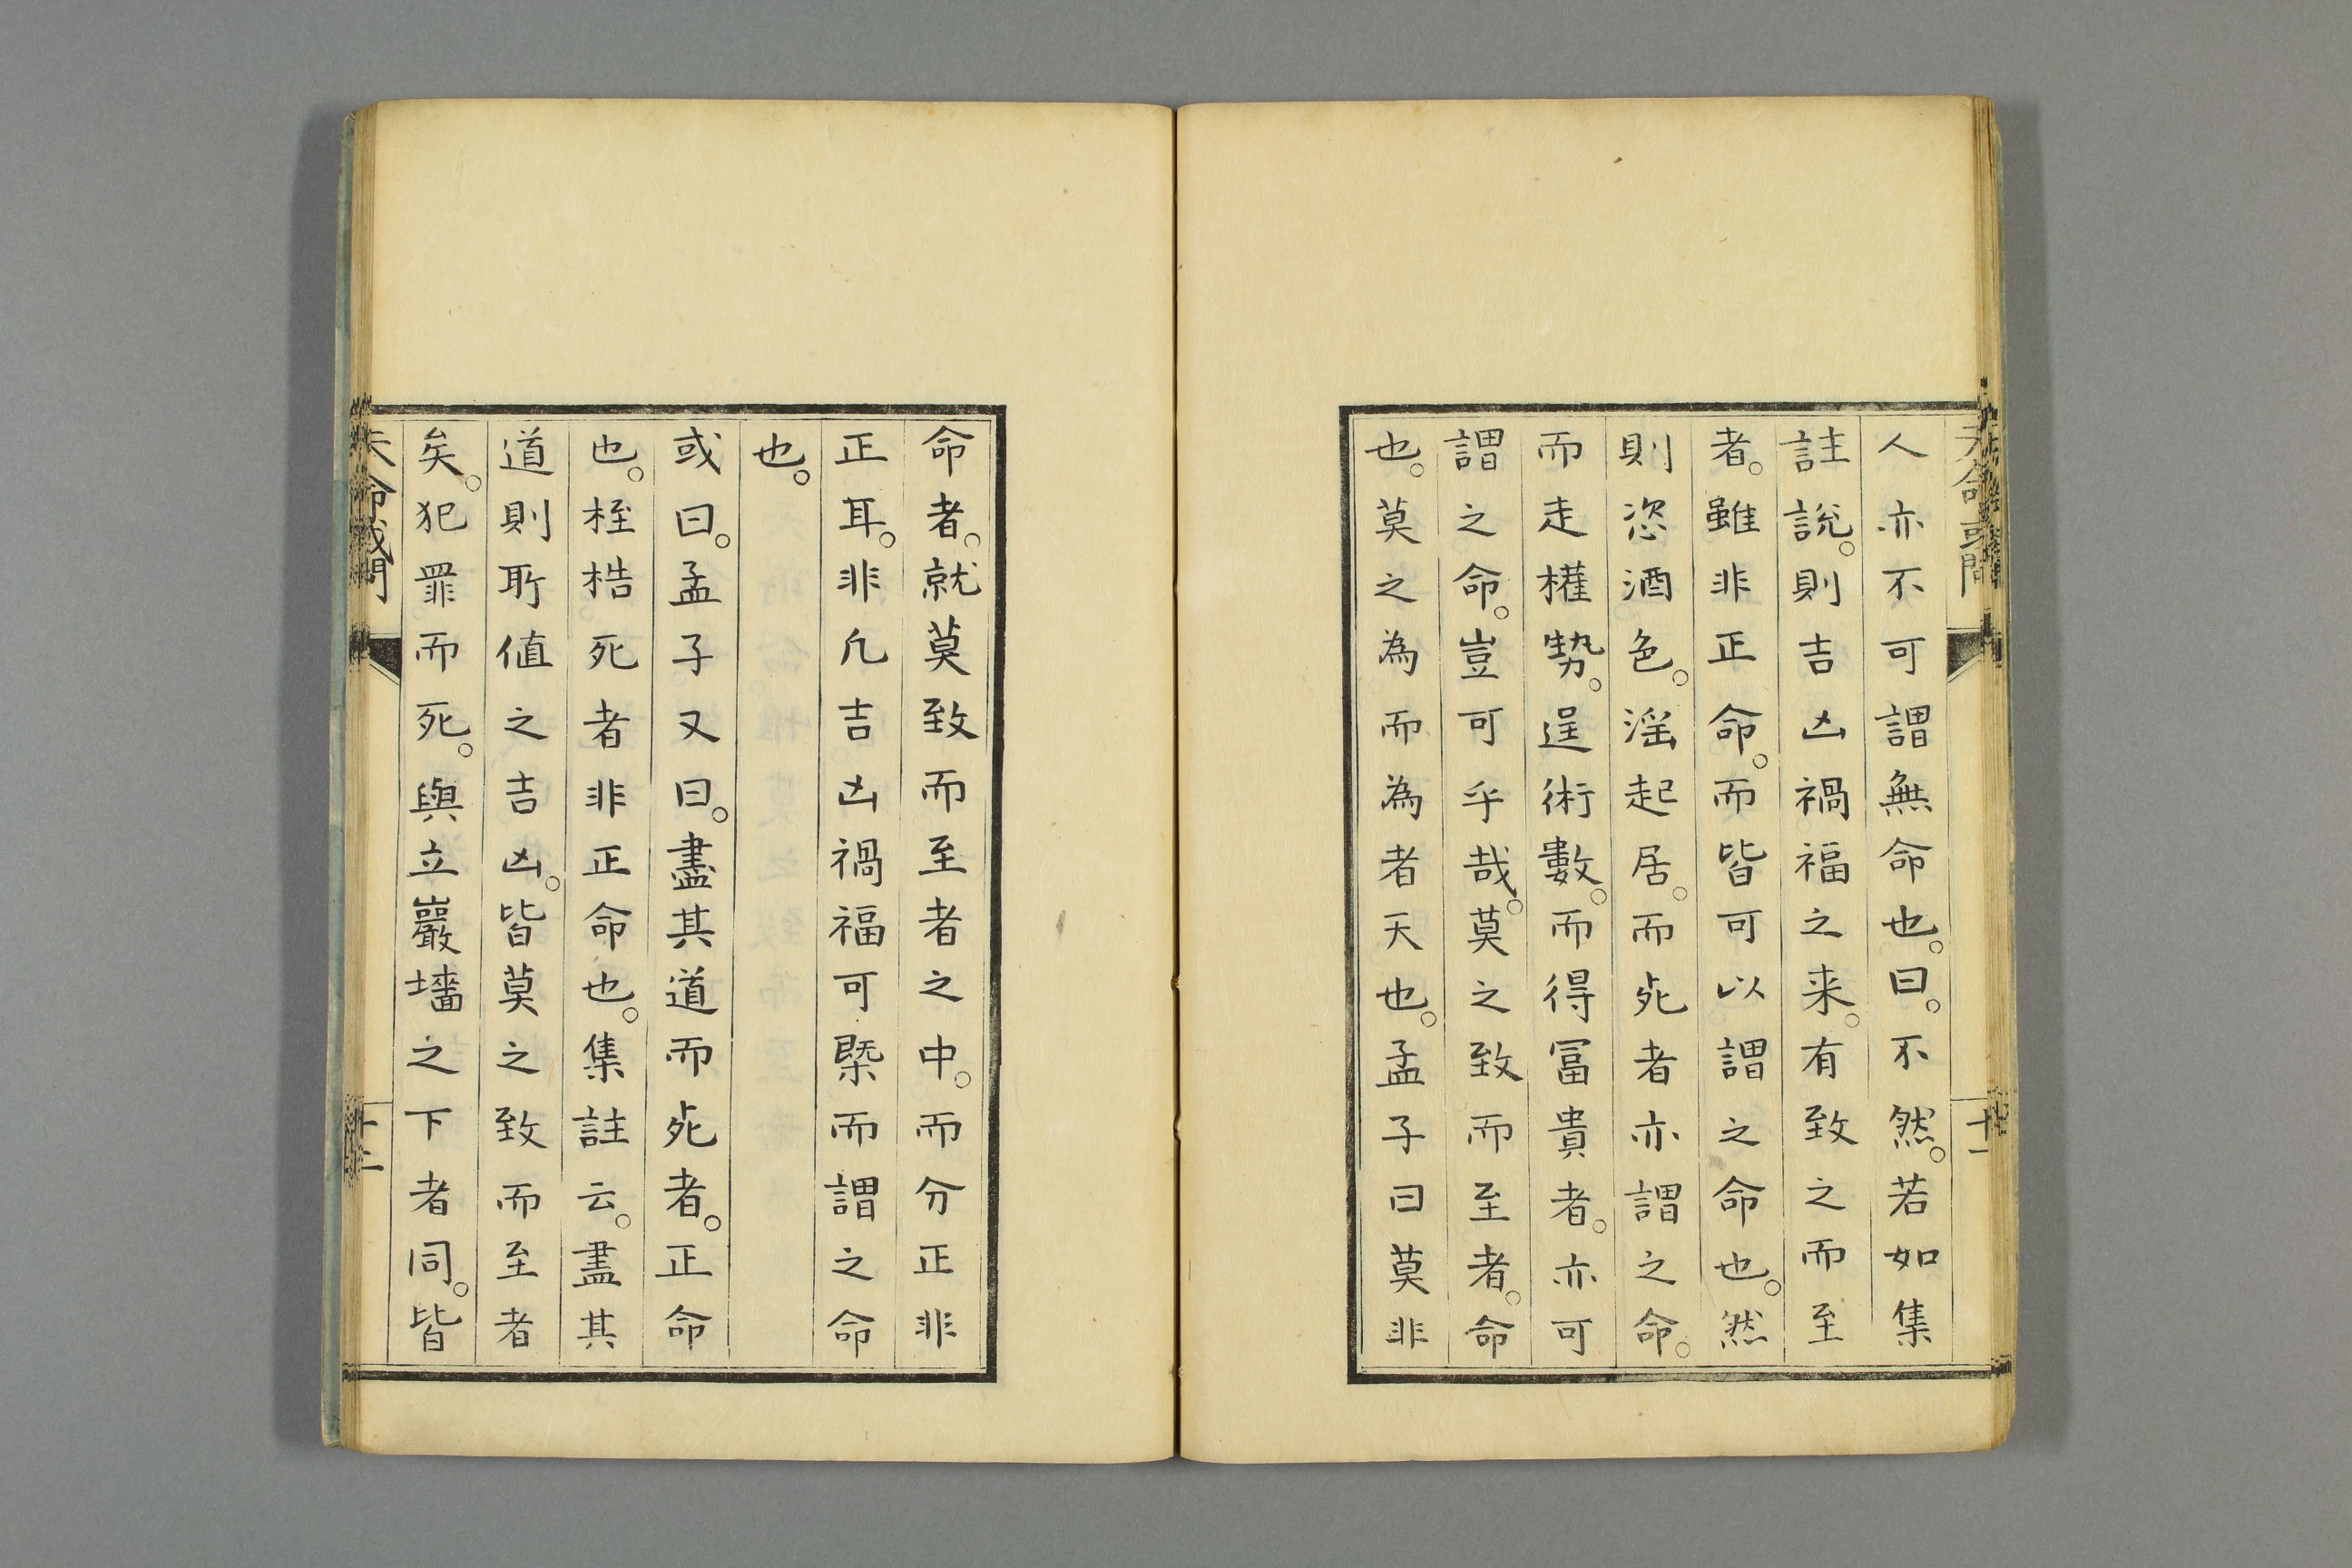 天命或問
十一
人亦不可謂無命也。曰。不然。若如集
註說。則吉凶禍福之来。有致之而至
者。雖非正命。而皆可以謂之命也。然
則恣酒色。滛起居。而死者亦謂之命。
而走權勢。逞術數。而得冨貴者。亦可
謂之命。豈可乎哉。莫之致而至者。命
也。莫之為而為者天也。孟子曰莫非
命者。就莫致而至者之中。而分正非
正耳。非凢吉凶禍福可槩而謂之命
也。
或曰。孟子又曰。盡其道而死者。正命
也。桎梏死者非正命也。集註云。盡其
道則所值之吉凶。皆莫之致而至者
矣。犯罪而死。與立巖墻之下者同。皆
天命或問
十二